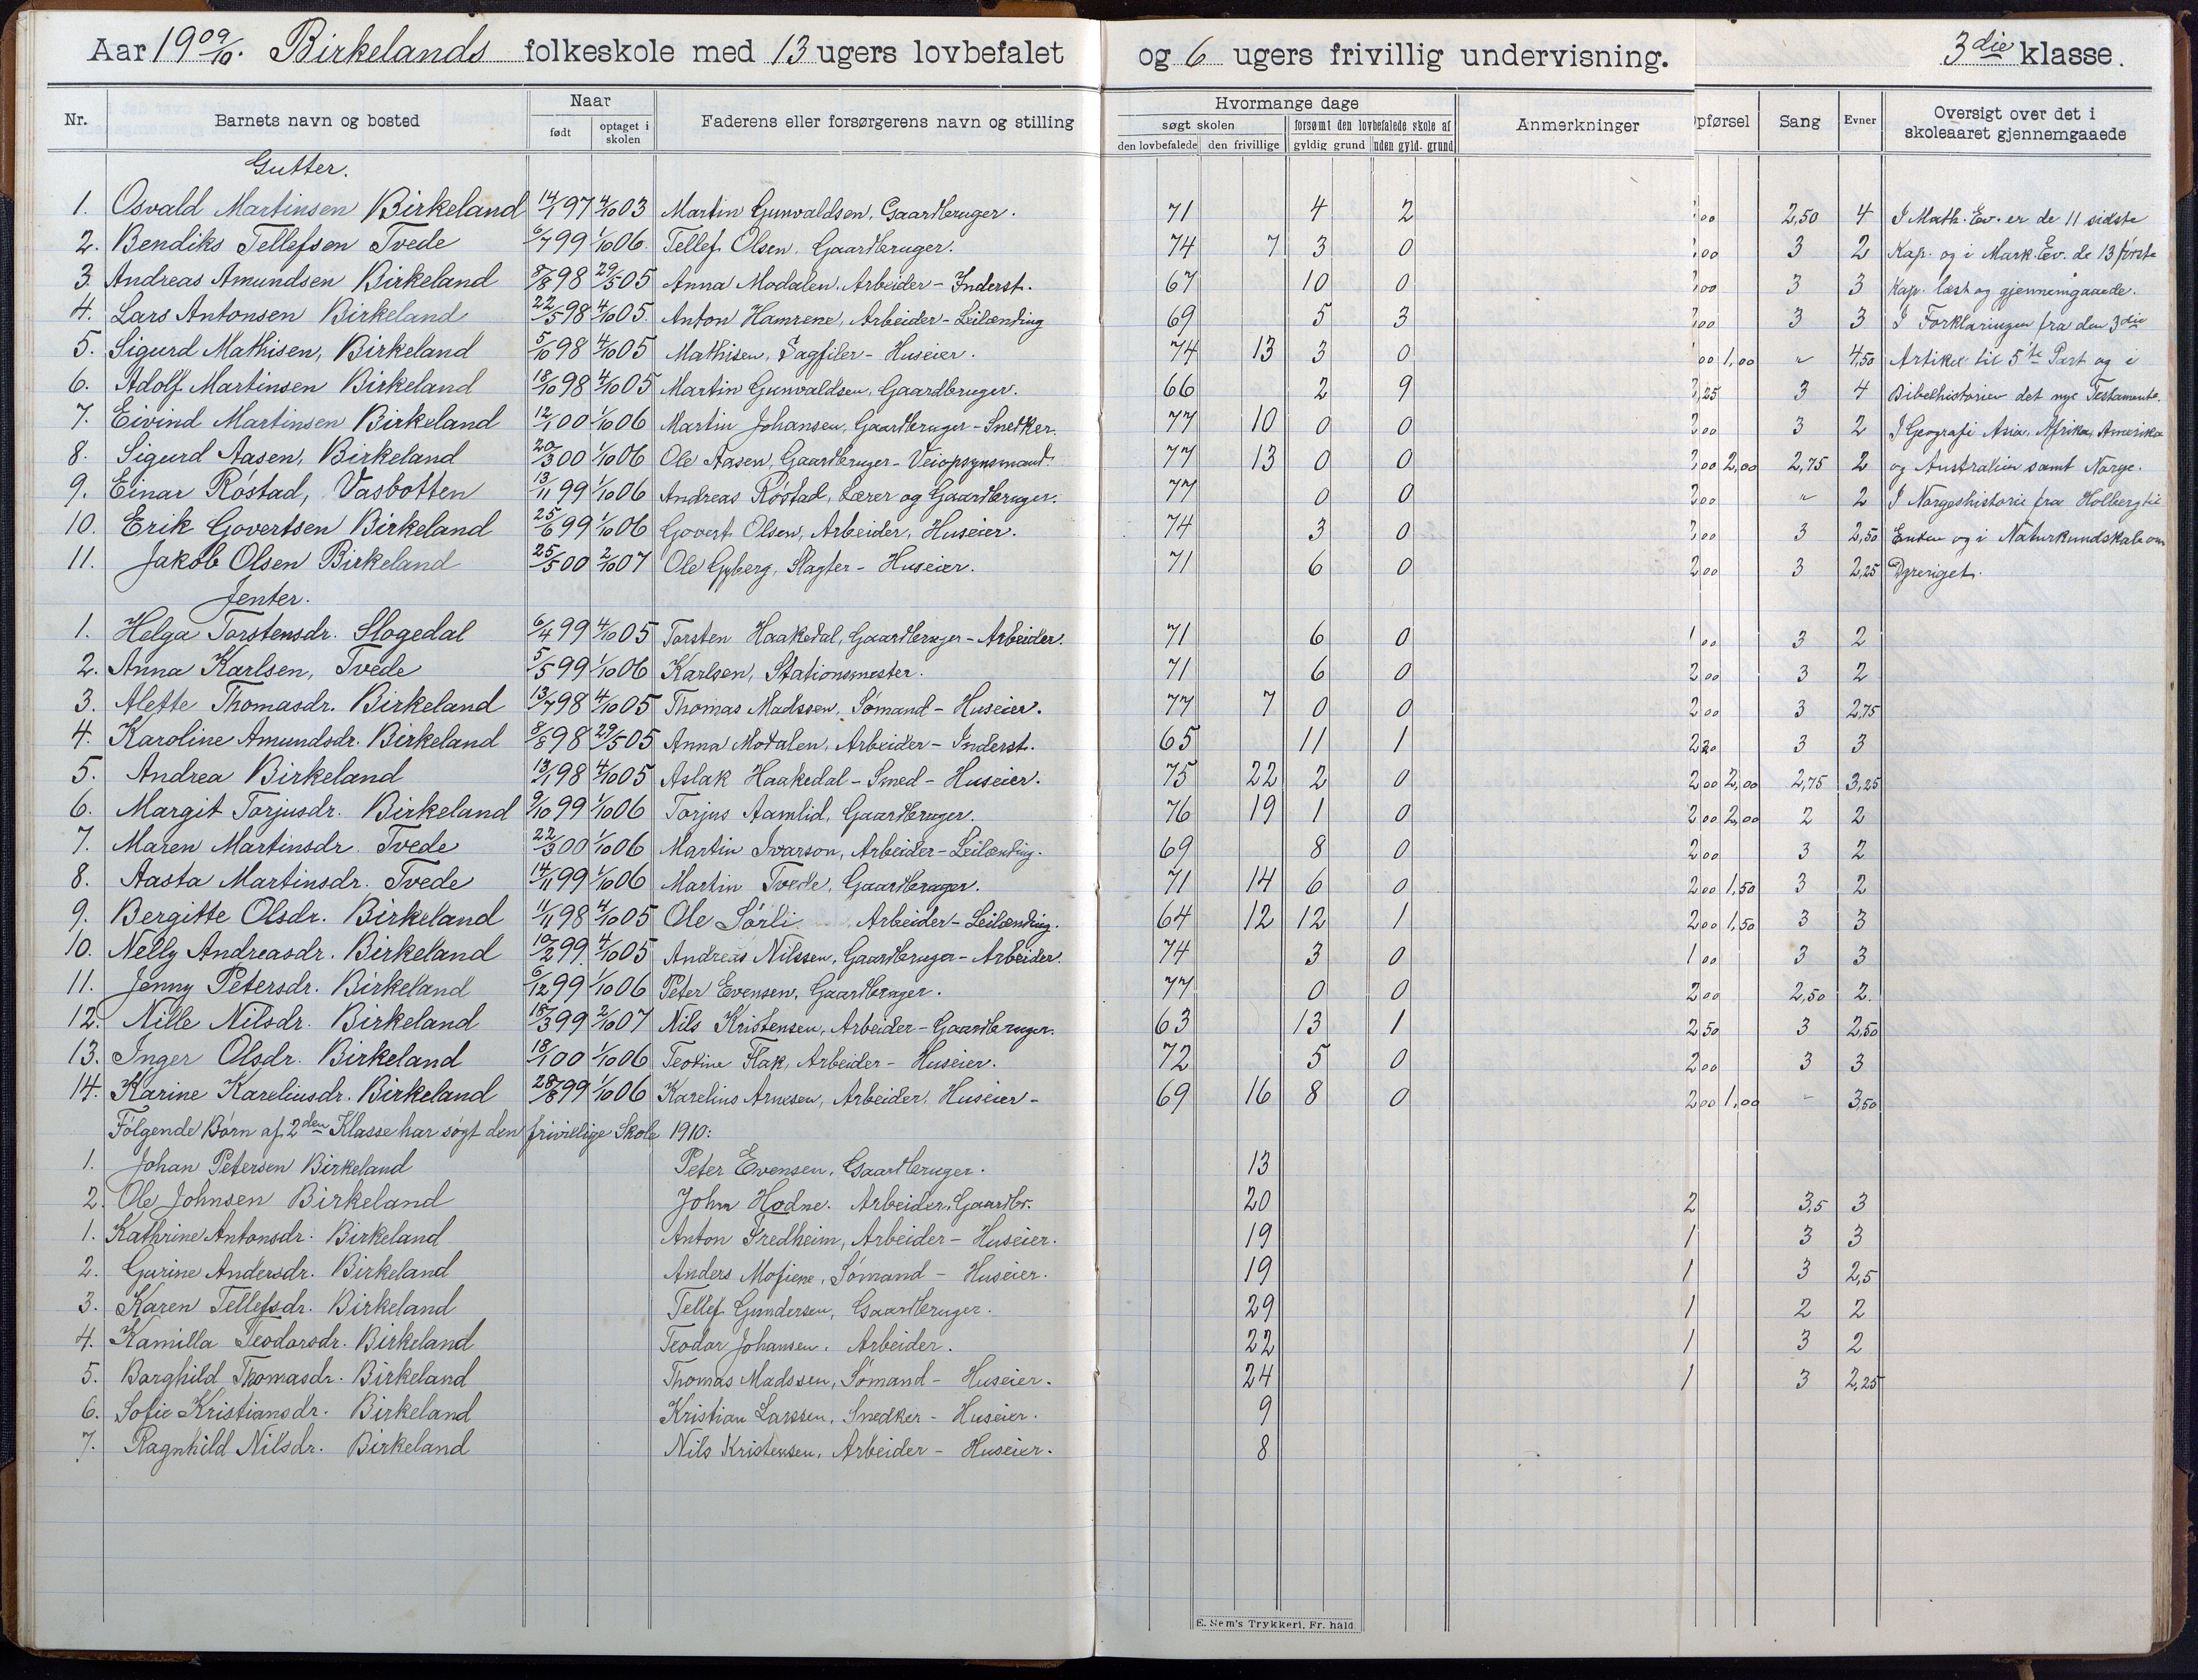 Aar 1909/10. Birkelands folkeskole med 13 ugers lovbefalet og 6 ugers frivillig undervisning. 3die klasse.
Nr. Barnets navn og bosted Naar født optaget i skolen Faderens eller forsørgerens navn og stilling Hvormange dage søgt skolen den lovbefalede den frivillige forsømt den lovbefalede skole af gyldig grund uden gyld. grund Anmerkninger pførsel Sang Evner Oversigt over det i skoleaaret gjennemgaaede
Gutter.
1. Osvald Martinsen Birkeland 14/1 97 4/10 03 Martin Gunvaldsen, Gaardbruger. 71 4 2 00 2,50 4 I Math. Ev. er de 11 sidste
2. Bendiks Tellefsen Tvede 6/7 99 1/10 06. Tellef Olsen, Gaardbruger. 74 7 3 0 00 3 2 Kap. og i Mark. Ev. de 13 første
3. Andreas Amundsen Birkeland 8/8 98 29/5 05 Anna Modalen, Arbeider - Inderst. 67 10 0 00 3 3 Kap. læst og gjennemgaaede.
4. Lars Antonsen Birkeland 22/5 98 4/10 05. Anton Hamrene, Arbeider - Leilænding 69 5 3 00 3 3 I Forklaringen fra den 3die
5. Sigurd Mathisen, Birkeland 5/10 98 4/10 05 Mathisen, Sagfiler - Huseier. 74 13 3 0 00 1,00 " 4,50 Artikel til 5te Part og i
6. Adolf Martinsen Birkeland 18/10 98 4/10 05 Martin Gunvaldsen, Gaardbruger. 66 2 9 25 3 4 Bibelhistorien det nye Testamente.
7. Eivind Martinsen Birkeland 12/1 00 1/10 06 Martin Johansen, Gaardbruger - Snedker. 77 10 0 0 00 3 2 I Geografi Asia, Afrika, Amerika
8. Sigurd Aasen, Birkeland 20/3 00 1/10 06 Ole Aasen, Gaardbruger - Veiopsynsmand. 77 13 0 0 00 2,00 2,75 2 og Australien samt Norge.
9. Einar Røstad, Vasbotten 13/11 99 1/10 06 Andreas Røstad, Lærer og Gaardbruger. 77 0 0 00 " 2 I Norgeshistorie fra Holberg til
10. Erik Govertsen Birkeland 25/6 99 1/10 06 Govert Olsen, Arbeider, Huseier. 74 3 0 00 3 2,50 Enden og i Naturkundskab om
11. Jakob Olsen Birkeland 25/5 00 2/10 07 Ole Gyberg, Slagter - Huseier. 71 6 0 2 00 3 2,25 Dyreriget.
Jenter.
1. Helga Torstensdr. Slogedal 6/4 99 4/10 05 Torsten Haakedal, Gaardbruger - Arbeider. 71 6 0 1 00 3 2
2. Anna Karlsen, Tvede 5/5 99 1/10 06 Karlsen, Stationsmester. 71 6 0 2 00 3 2
3. Alette Thomasdr. Birkeland 13/7 98 4/10 05 Thomas Madssen, Sømand - Huseier. 77 7 0 0 2 00 3 2,75
4. Karoline Amundsdr. Birkeland 8/8 98 29/5 05 Anna Modalen, Arbeider - Inderst. 65 11 1 2 20 3 3
5. Andrea Birkeland 13/1 98 4/10 05 Aslak Haakedal - Smed - Huseier. 75 22 2 0 2 00 2,00 2,75 3,25
6. Margit Torjusdr. Birkeland 9/10 99 1/10 06 Torjus Aamlid, Gaardbruger. 76 19 1 0 2 00 2,00 2 2
7. Maren Martinsdr. Tvede 22/3 00 1/10 06 Martin Ivarson, Arbeider - Leilænding. 69 8 0 2 00 3 2
8. Aasta Martinsdr. Tvede 14/11 99 1/10 06 Martin Tvede, Gaardbruger. 71 14 6 0 2 00 1,50 3 2
9. Bergitte Olsdr. Birkeland 11/11 98 4/10 05 Ole Sørli, Arbeider - Leilænding. 64 12 12 1 2 00 1,50 3 3
10. Nelly Andreasdr. Birkeland 10/2 99. 4/10 05 Andreas Nilssen, Gaardbruger - Arbeider. 74 3 0 1 00 3 3
11. Jenny Petersdr. Birkeland 6/12 99 1/10 06 Peter Evensen, Gaardbruger. 77 0 0 2 00 2,50 2.
12. Nille Nilsdr. Birkeland 18/3 99 2/10 07 Nils Kristensen, Arbeider - Gaardbruger. 63 13 1 2 50 3 2,50
13. Inger Olsdr. Birkeland 18/1 00 1/10 06 Teodine Flak, Arbeider - Huseier. 72 5 0 2 00 3 3
14. Karine Kareliusdr. Birkeland 28/8 99 1/10 06 Karelius Arnesen, Arbeider, Huseier - 69 16 8 0 2 00 1,00 " 3,50
Følgende Børn af 2den Klasse har søgt den frivillige Skole 1910:
1. Johan Petersen Birkeland Peter Evensen, Gaardbruger. 13
2. Ole Johnsen Birkeland John Hodne. Arbeider, Gaardbr. 20 2 3,5 3
1. Kathrine Antonsdr. Birkeland Anton Fredheim, Arbeider - Huseier. 19 1 3 3
2. Gurine Andersdr. Birkeland Anders Mofiene, Sømand - Huseier. 19 1 3 2,5
3. Karen Tellefsdr. Birkeland Tellef Gundersen, Gaardbruger. 29 1 2 2
4. Kamilla Teodorsdr. Birkeland Teodor Johansen, Arbeider. 22 1 3 2
5. Borghild Thomasdr. Birkeland Thomas Madssen, Sømand - Huseier. 24 1 3 2,25
6. Sofie Kristiansdr. Birkeland Kristian Larssen, Snedker - Huseier. 9
7. Ragnhild Nilsdr. Birkeland Nils Kristensen, Arbeider - Huseier. 8
E. Sem's Trykkeri, Fr. hald.